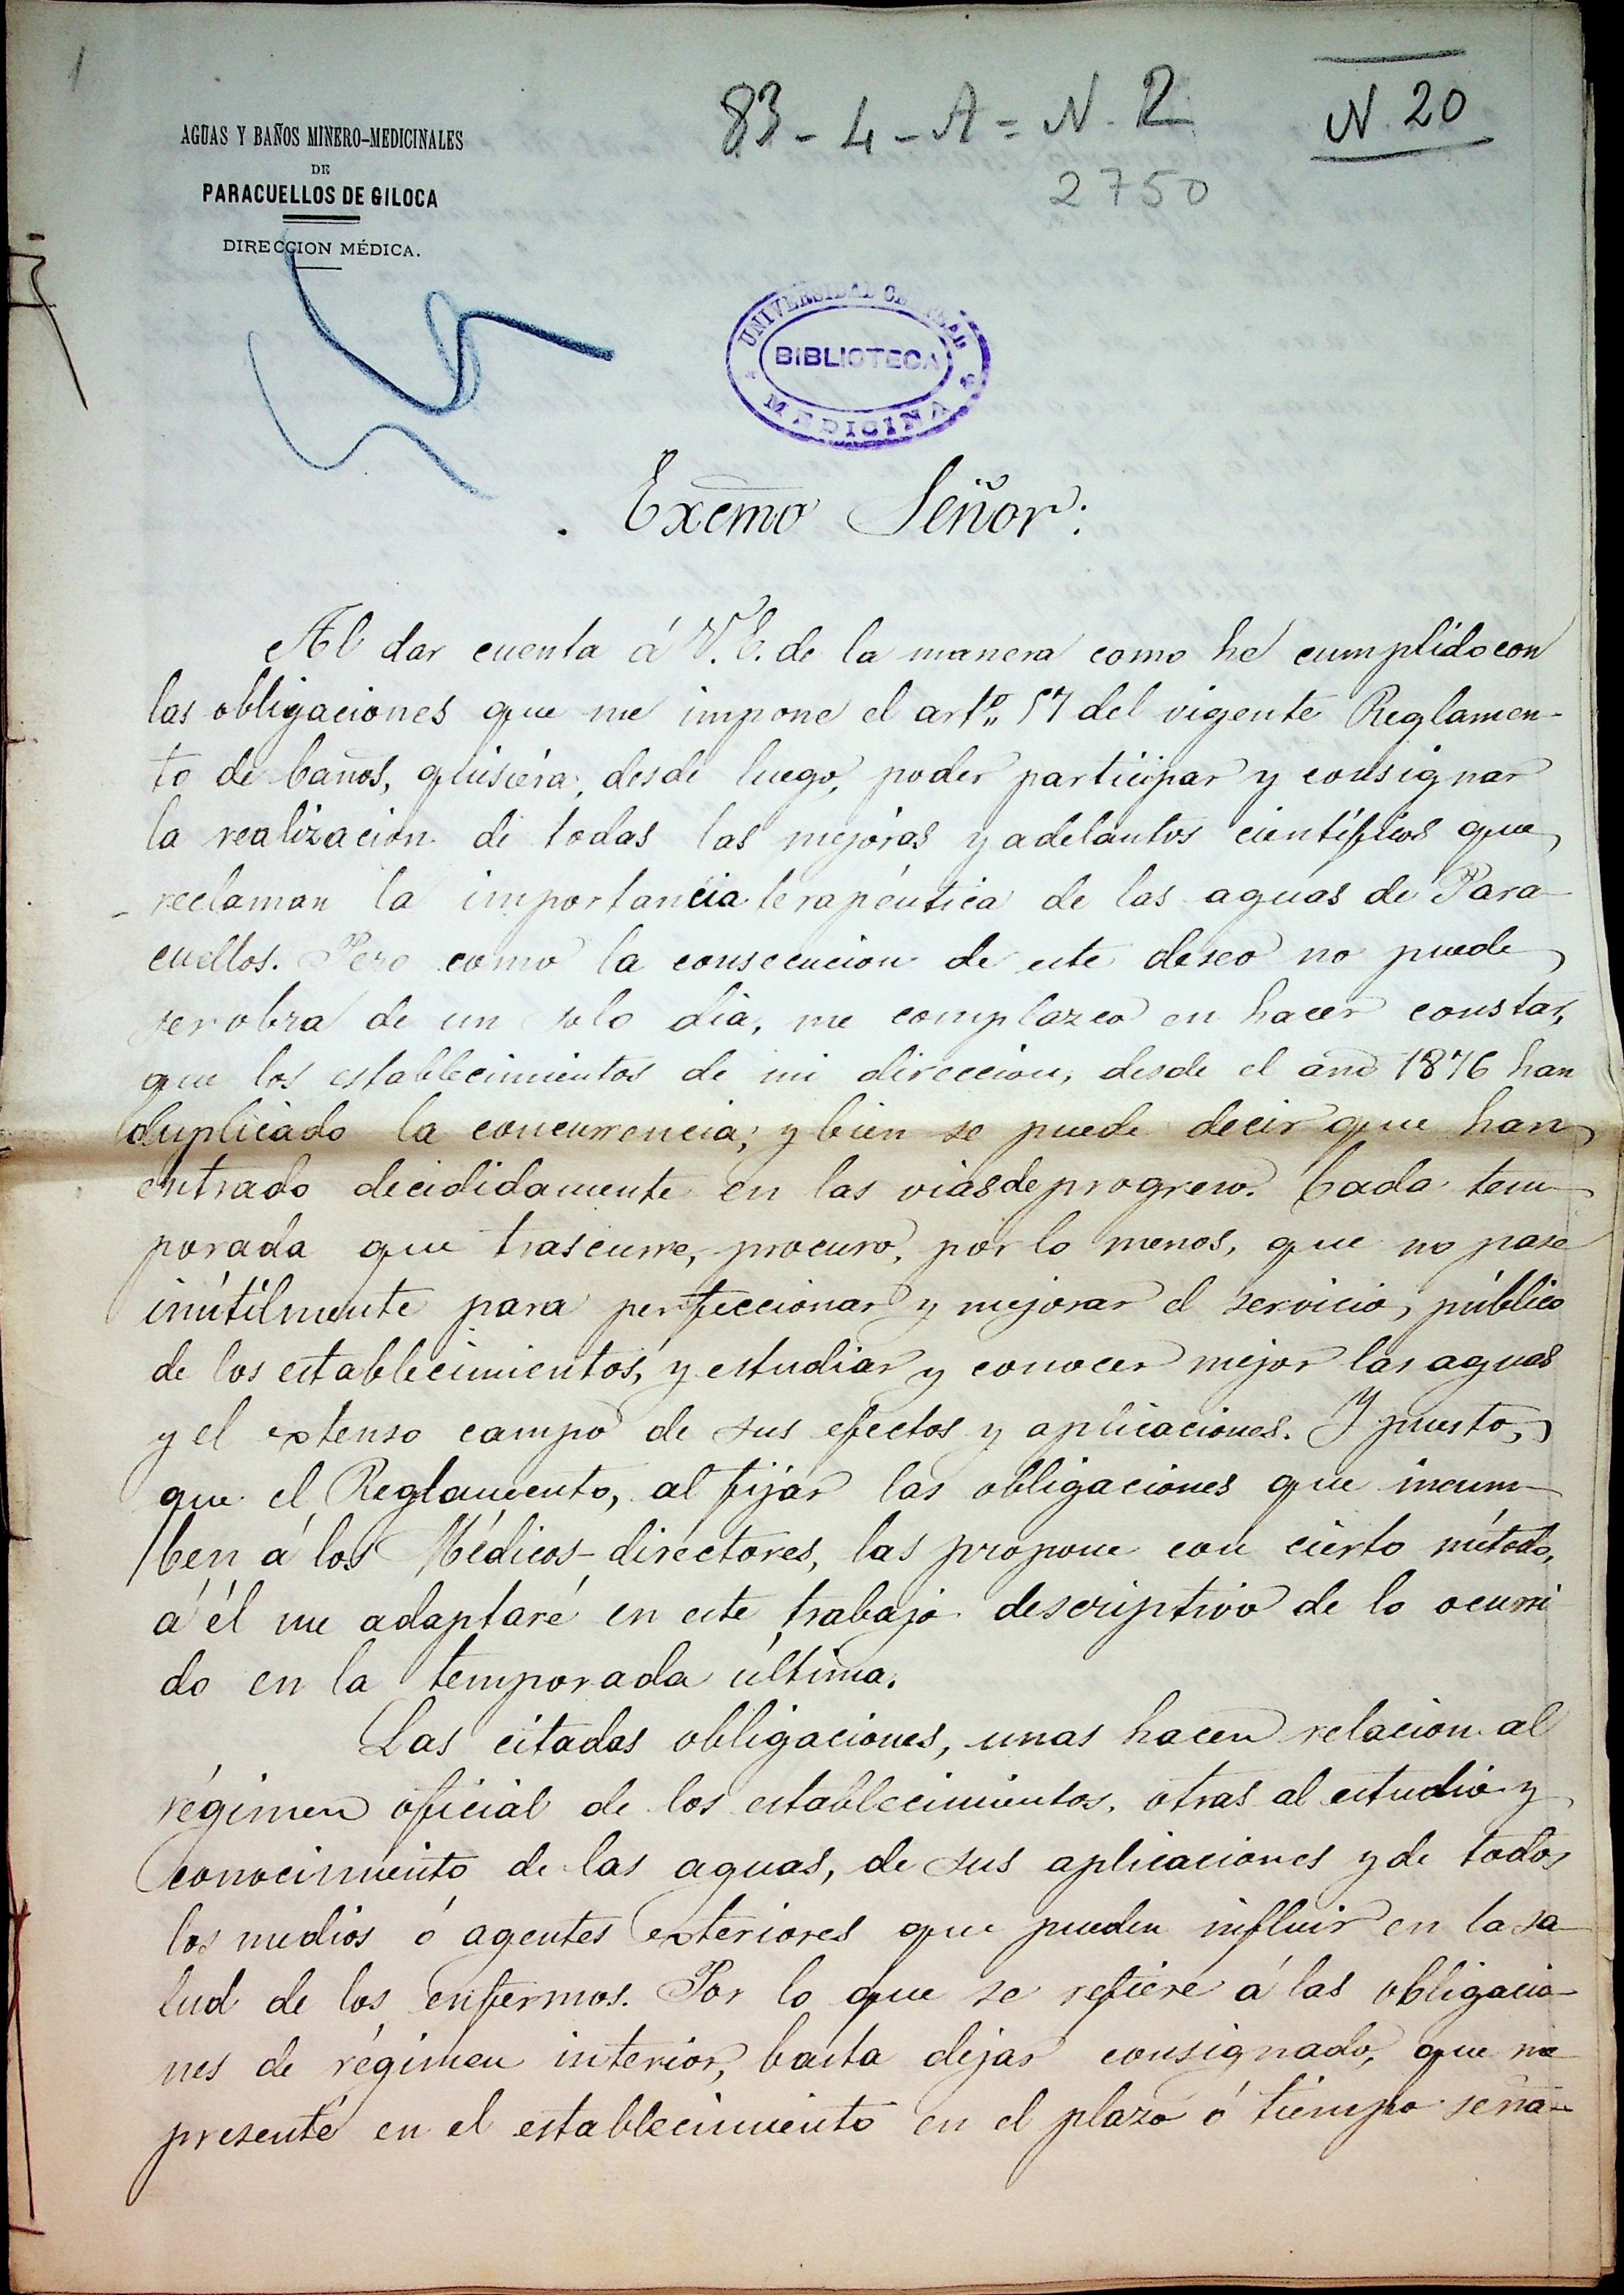 1
83-4-A=N.2
N 20
2750
AGUAS Y BAÑOS MINERO-MEDICINALES
DE
PARACUELLOS DE GILOCA
DIRECCION MÉDICA.
UNIVERSIDAD CENTRAL
BIBLIOTECA
MEDICINA
Excmo Señor:
Al dar cuenta á V. E. de la manera como he cumplido con
las obligaciones que me impone el artº 57 del vigente Reglamen-
to de baños, quisiera, desde luego, poder participar y consignar
la realizacion de todas las mejoras y adelantos científicos que
reclaman la importancia terapéutica de las aguas de Para-
cuellos. Pero como la consecucion de este deseo no puede
ser obra de un solo dia, me complazco en hacer constar,
que los establecimientos de mi direccion, desde el año 1876 han
duplicado la concurrencia; y bien se puede decir que han
entrado decididamente en las vias de progreso. Cada tem-
porada que trascurre, procuro, por lo menos, que no pase
inútilmente para perfeccionar y mejorar el servicio público
de los establecimientos, y estudiar y conocer mejor las aguas
y el extenso campo de sus efectos y aplicaciones. Y puesto,
que el Reglamento, al fijar las obligaciones que incum-
ben á los Médicos-directores, las propone con cierto método,
á él me adaptaré en este trabajo descriptivo de lo ocurri
do en la temporada última.
Las citadas obligaciones, unas hacen relacion al
régimen oficial de los establecimientos, otras al estudio y
conocimiento de las aguas, de sus aplicaciones y de todos
los medios ó agentes exteriores que pueden influir en la sa-
lud de los enfermos. Por lo que se refiere á las obligacio-
nes de régimen interior, basta dejar consignado, que me
presenté en el establecimiento en el plazo ó tiempo seña-